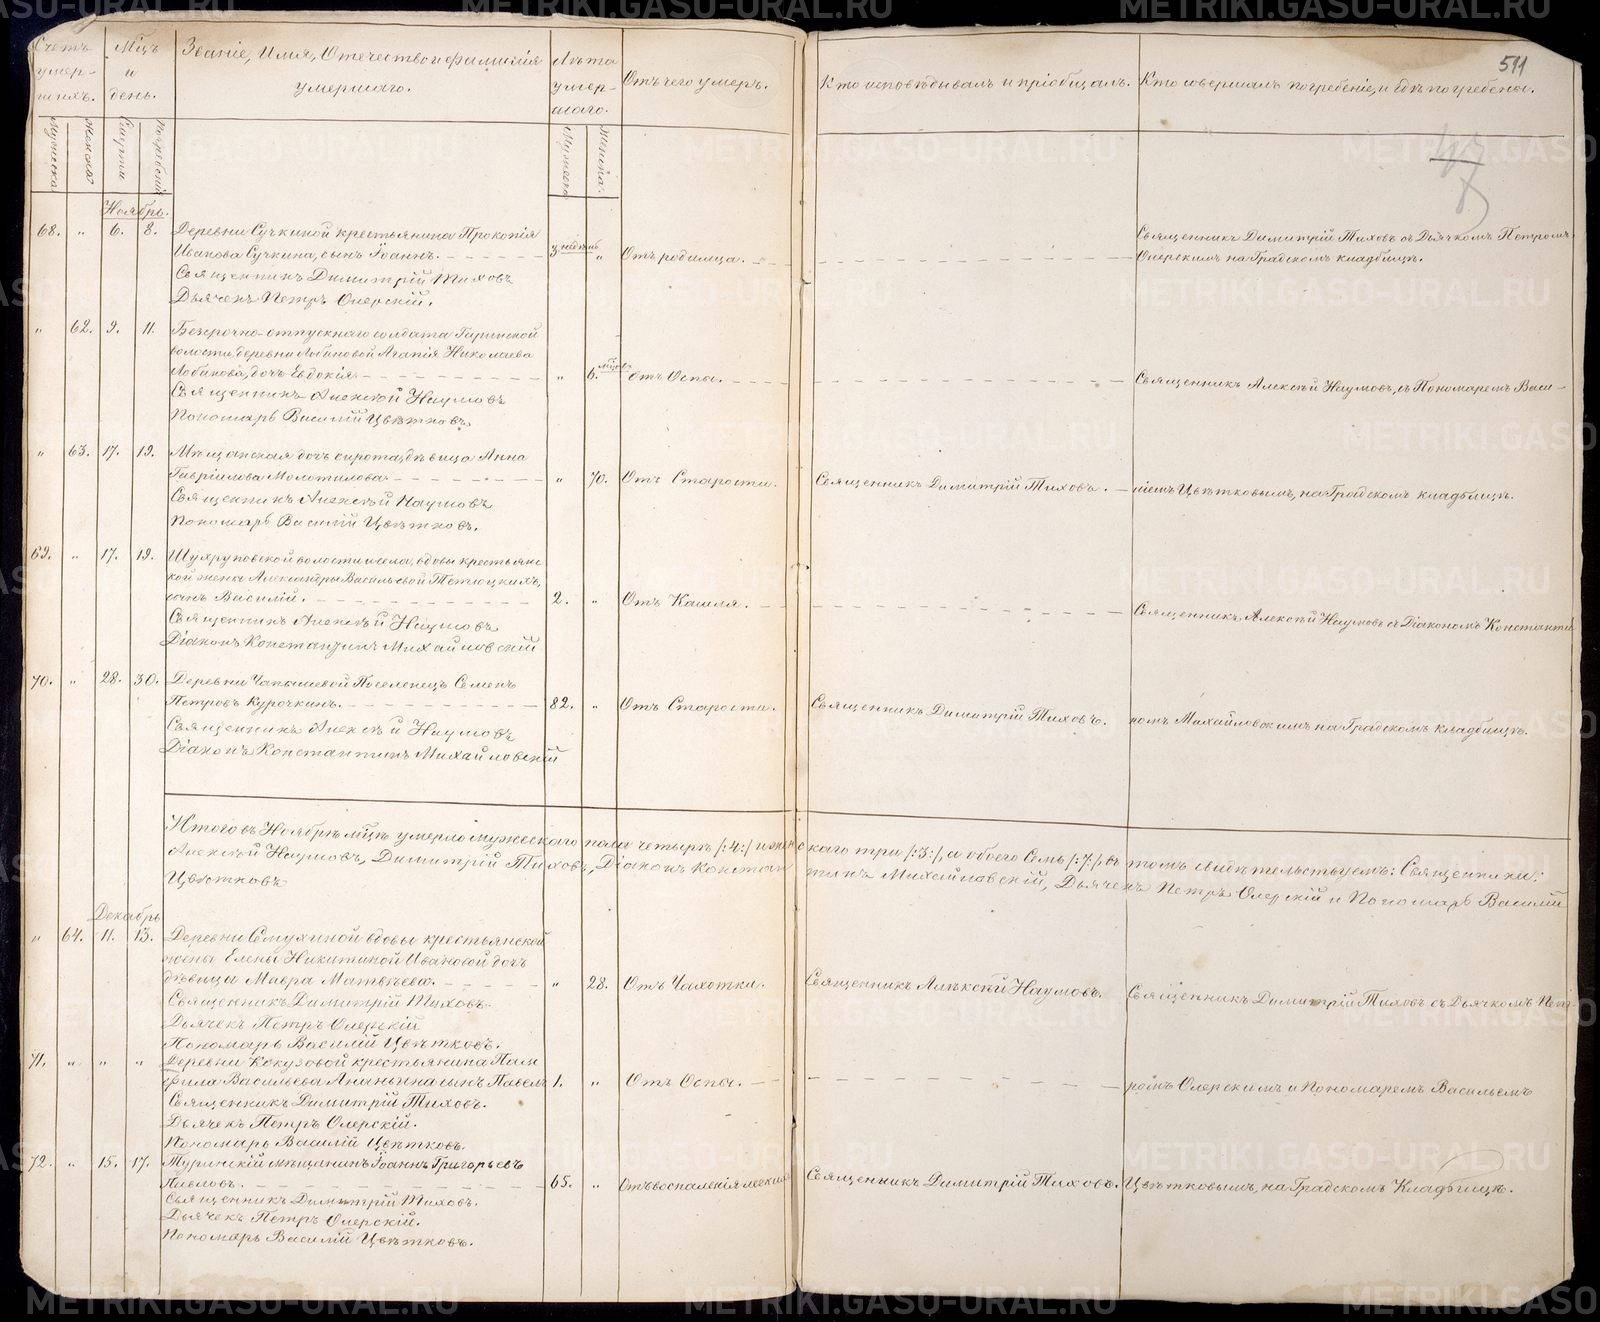 METRIKI.GASO-URAL.RU
591
Счетъ умер-шихъ.
Мцъ и день.
Званіе, Имя, Отечество и фамилія умершаго.
Лѣта умер-шаго.
Отъ чего умеръ.
Кто исповѣдывалъ и пріобщалъ.
Кто совершалъ погребеніе, и гдѣ погребены.
Мужеска
Женска
Смерти
Погребенія
Мужеска
Женска
Ноябрь.
68. „ 6. 8. Деревни Сучкиной крестьянина Прокопія
Иванова Сучкина, сынъ Іоаннъ. 3 недѣль „ Отъ родимца.
Священникъ Димитрій Тиховъ
Дьячекъ Петръ Озерскій.
Священникъ Димитрій Тиховъ съ Дьячкомъ Петромъ
Озерскимъ на Градскомъ кладбищѣ.
„ 62. 9. 11. Безсрочно-отпускнаго солдата Гаринской
волости деревни Лобановой Агапія Николаева
Лобанова, дочь Евдокія „ 6. мцовъ Отъ Оспы.
Священникъ Алексѣй Наумовъ
Пономарь Василій Цвѣтковъ.
Священникъ Алексѣй Наумовъ, съ Пономаремъ Васи-
„ 63. 17. 19. Мѣщанская дочь сирота, дѣвица Анна
Гавріилова Молотилова „ 70. Отъ Старости. Священникъ Димитрій Тиховъ. ліемъ Цвѣтковымъ, на Градскомъ кладбищѣ.
Священникъ Алексѣй Наумовъ
Пономарь Василій Цвѣтковъ.
69. „ 17. 19. Шухруповской волости и села, вдовы крестьянс-
кой жены Александры Васильевой Тетюцкихъ,
сынъ Василій. 2. „ Отъ Кашля.
Священникъ Алексѣй Наумовъ
Діаконъ Константинъ Михайловскій
Священникъ Алексѣй Наумовъ съ Діакономъ Константи-
70. „ 28. 30. Деревни Чапышевой Поселенецъ Семенъ
Петровъ Курочкинъ. 82. „ Отъ Старости. Священникъ Димитрій Тиховъ. номъ Михайловскимъ на Градскомъ кладбищѣ.
Священникъ Алексѣй Наумовъ
Діаконъ Константинъ Михайловскій
Итого въ Ноябрѣ мцѣ умерло мужескаго пола четыре /:4:/ женскаго три /:3:/, а обоего Семь /:7:/, въ томъ свидѣтельствуемъ: Священники:
Алексѣй Наумовъ, Димитрій Тиховъ, Діаконъ Константинъ Михайловскій, Дьячекъ Петръ Озерскій и Пономарь Василій
Цвѣтковъ
Декабрь
„ 64. 11. 13. Деревни Семухиной вдовы крестьянской
жены Елены Никитиной Ивановой дочь
дѣвица Мавра Матвѣева. „ 28. Отъ Чахотки. Священникъ Алексѣй Наумовъ.
Священникъ Димитрій Тиховъ
Дьячекъ Петръ Озерскій
Пономарь Василій Цвѣтковъ.
Священникъ Димитрій Тиховъ съ Дьячкомъ Пет-
71. „ „ „ Деревни Кокузовой крестьянина Пам
фила Васильева Ананьина сынъ Павелъ 1. „ Отъ Оспы.
Священникъ Димитрій Тиховъ.
Дьячекъ Петръ Озерскій.
Пономарь Василій Цвѣтковъ.
ромъ Озерскимъ и Пономаремъ Васильемъ
72. „ 15. 17. Туринскій мѣщанинъ Іоаннъ Григорьевъ
Павловъ. 65. „ Отъ воспаленія легкихъ Священникъ Димитрій Тиховъ. Цвѣтковымъ, на Градскомъ Кладбищѣ.
Священникъ Димитрій Тиховъ.
Дьячекъ Петръ Озерскій.
Пономарь Василій Цвѣтковъ.